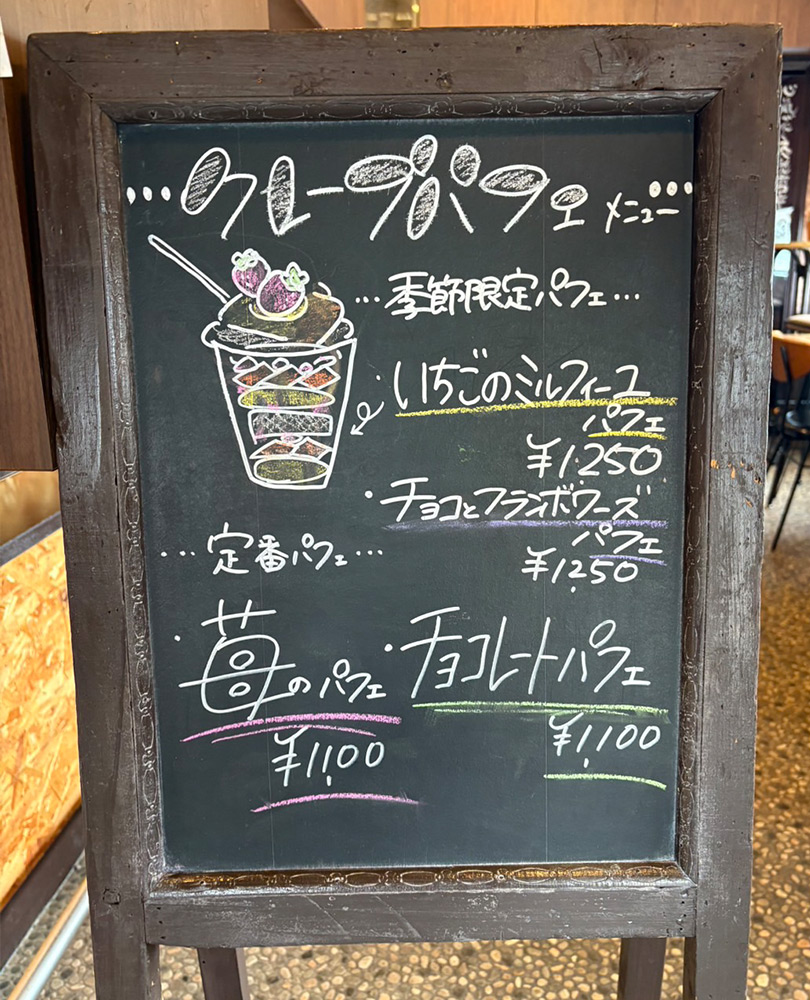 …クレープパフェ メニュー…
…季節限定パフェ…
いちごのミルフィーユ
パフェ
¥1,250
・チョコとフランボワーズ
パフェ
¥1,250
…定番パフェ…
・苺のパフェ
¥1,100
・チョコレートパフェ
¥1,100